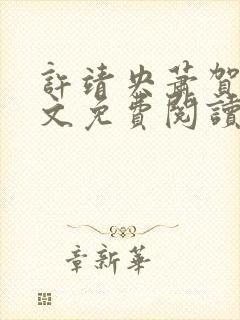 許靖央蕭賀
文免費閱讀
章新華